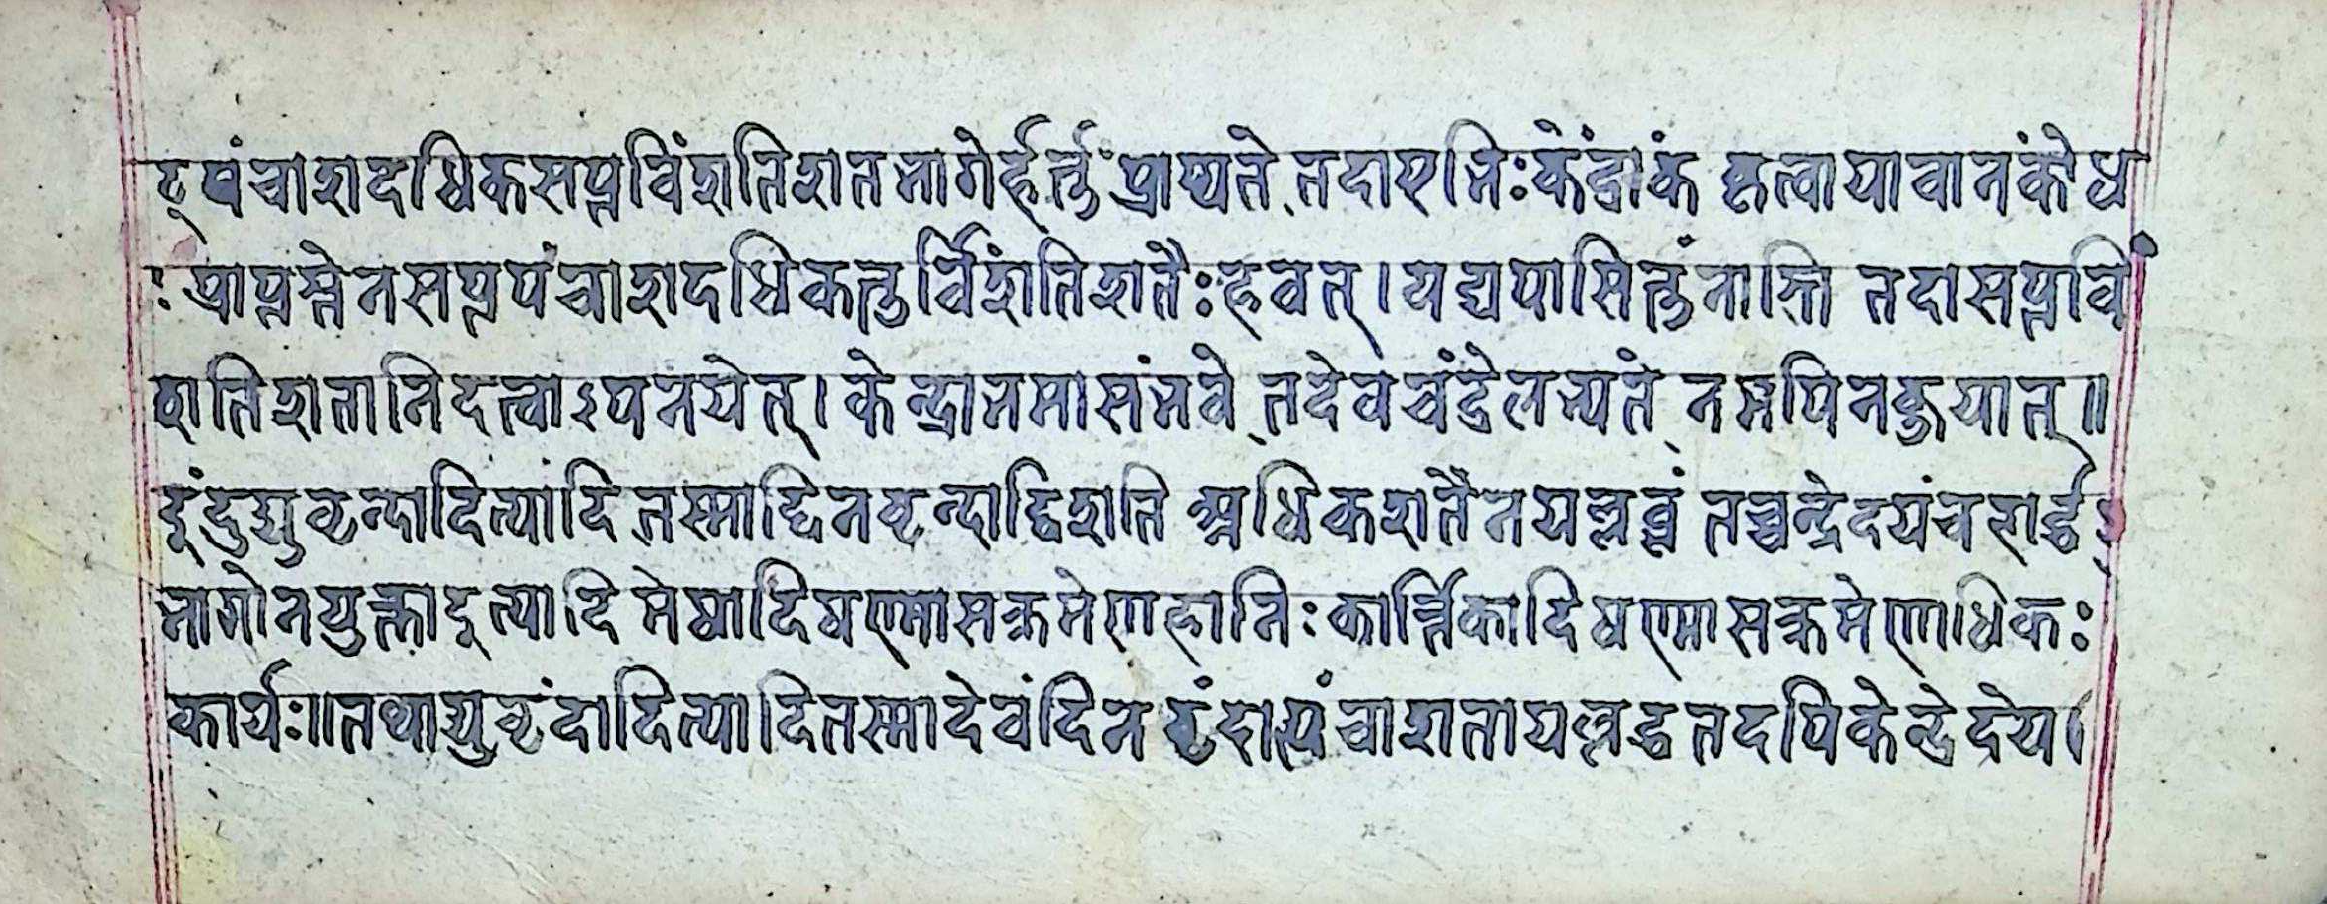 ट्पंचाशदधिकसप्तविंशतिशतभागेर्हर्त्तुं प्राप्यते तदाएभिः केंद्रांकं हृत्वा यावानंकोध
ः प्राप्तस्तेनसप्तपंचाशदधिकन्तुर्विंशतिशतैः हवत्। यद्यपासितुंनास्ति तदासप्तविं
शतिशतानिदत्वाऽपनयेत्। केन्द्रानमासंभवे तदेवचंद्रेलभ्यते नमपिनकुयात्॥
दुंदुद्युवृन्दादित्यादि तस्माद्दिनवृन्दाद्विंशति अधिकशतैनयल्लब्धं तच्चन्द्रेदयंचशर्द्ध
भागोनयुक्तादूत्यादि मेषादिषण्मासक्रमेणहानिः कार्त्तिकादिषण्मासक्रमेणाधिकः
कार्यः॥तथाद्युवृंदादित्यादितस्मादेवंदिनवृंदात्पंचाशतायल्लद्धतदपिकेन्द्रेदेय।